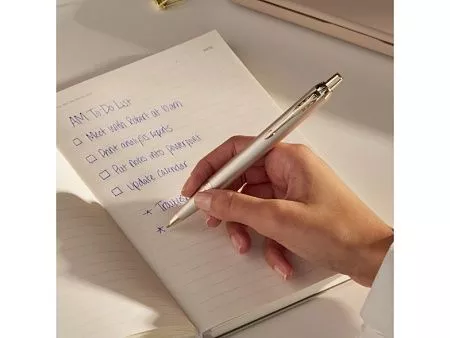 AM To-Do List
☐ Meet with Robert at 10am
☐ Draft analysis reports
☐ Put notes into powerpoint
☐ Update calendar
*
*